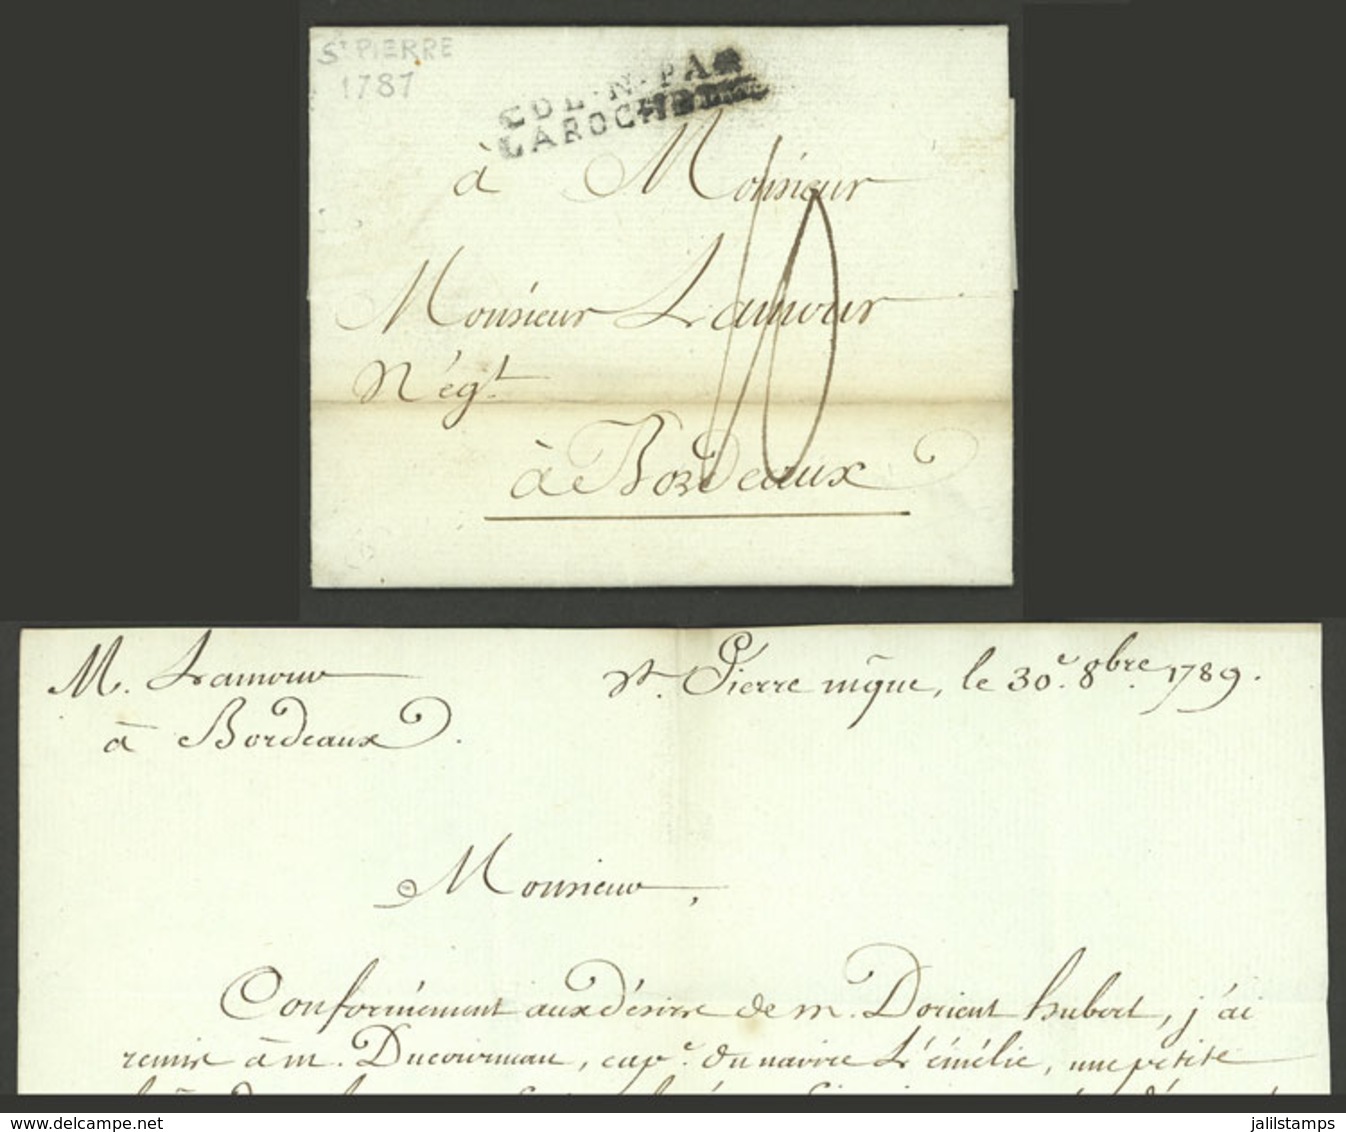 St PIERRE
1787
COL.N.PAR
LAROCHELLE
à Monsieur
Monsieur Lamour
Négt.
à Bordeaux
10
M. Lamour
à Bordeaux.
St. Pierre mque, le 30e. 8bre. 1789.
Monsieur,
Conformément aux désirs de m. Dorient hubert, j'ai
remis à m. Ducourneau, cape. du navire L'émélie, une petite
jalilstamps